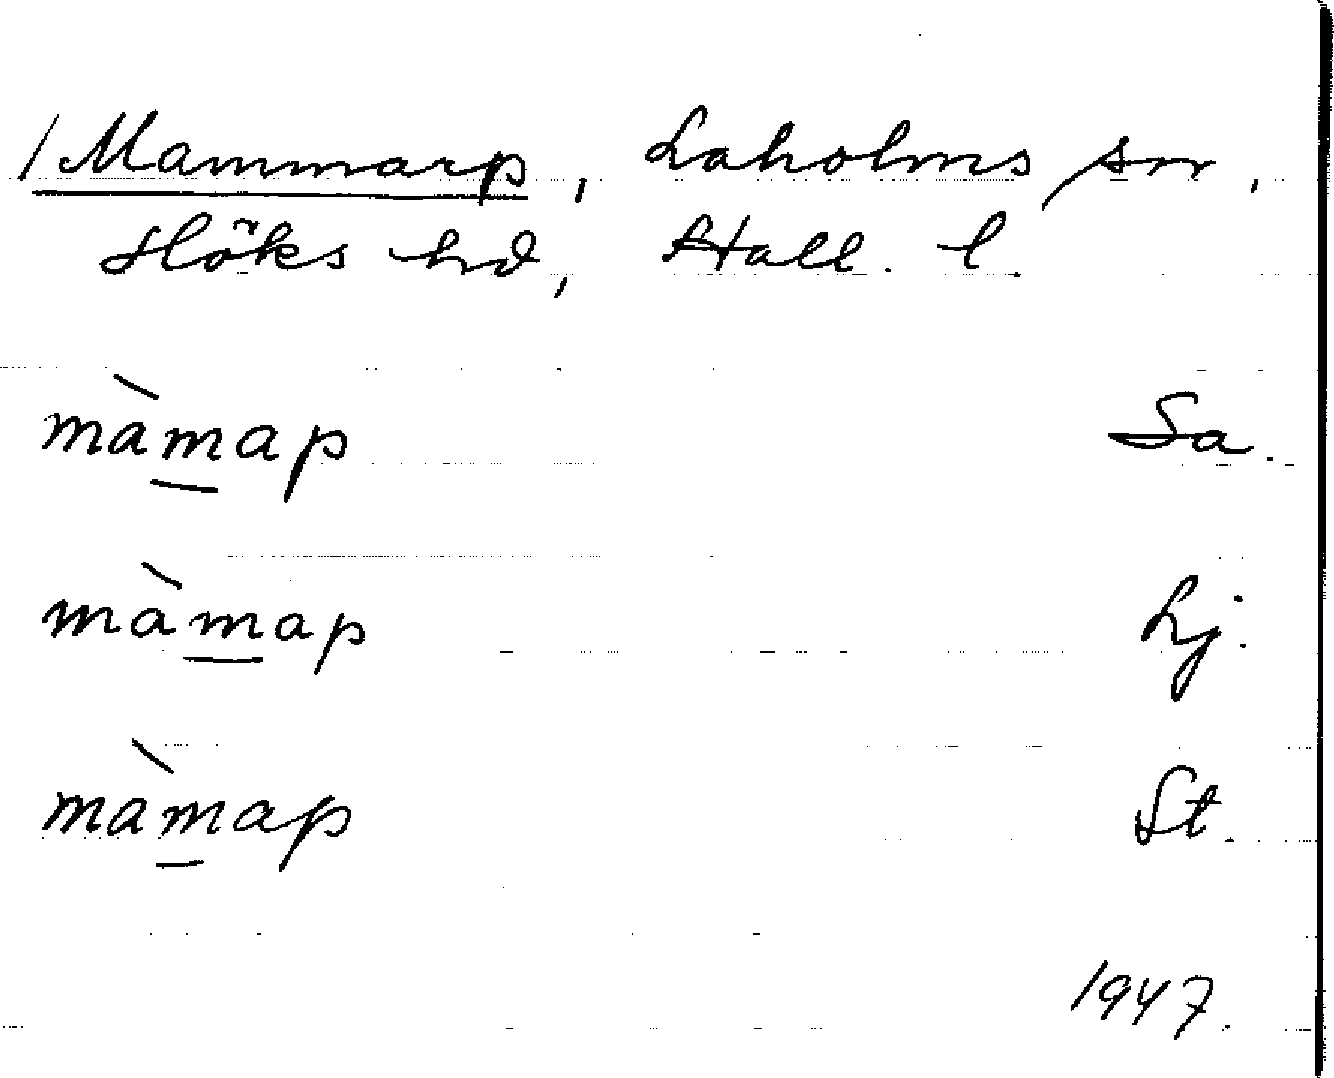 / Mammarp, Laholms sn,
Höks hd, Hall. l.
màmap Sa.
màmap Lj.
màmap St.
1947.